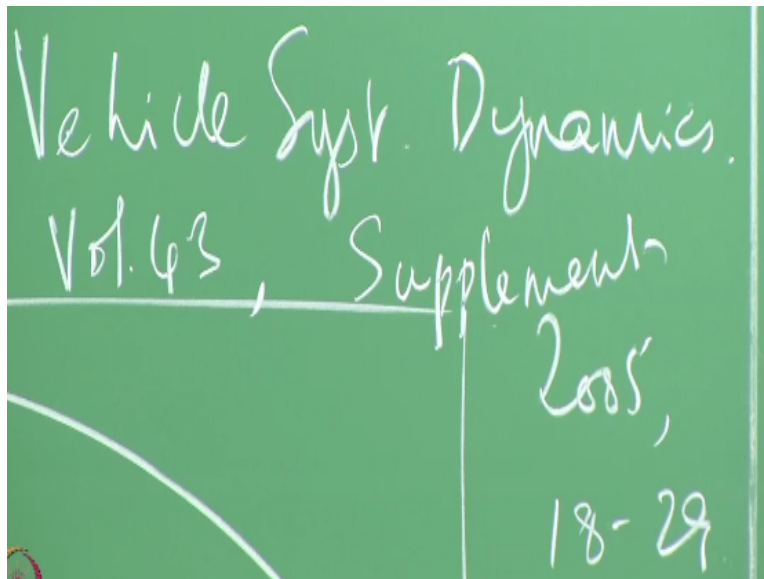 Vehicle Syst. Dynamics.
Vol. 43, Supplement
2005,
18-29